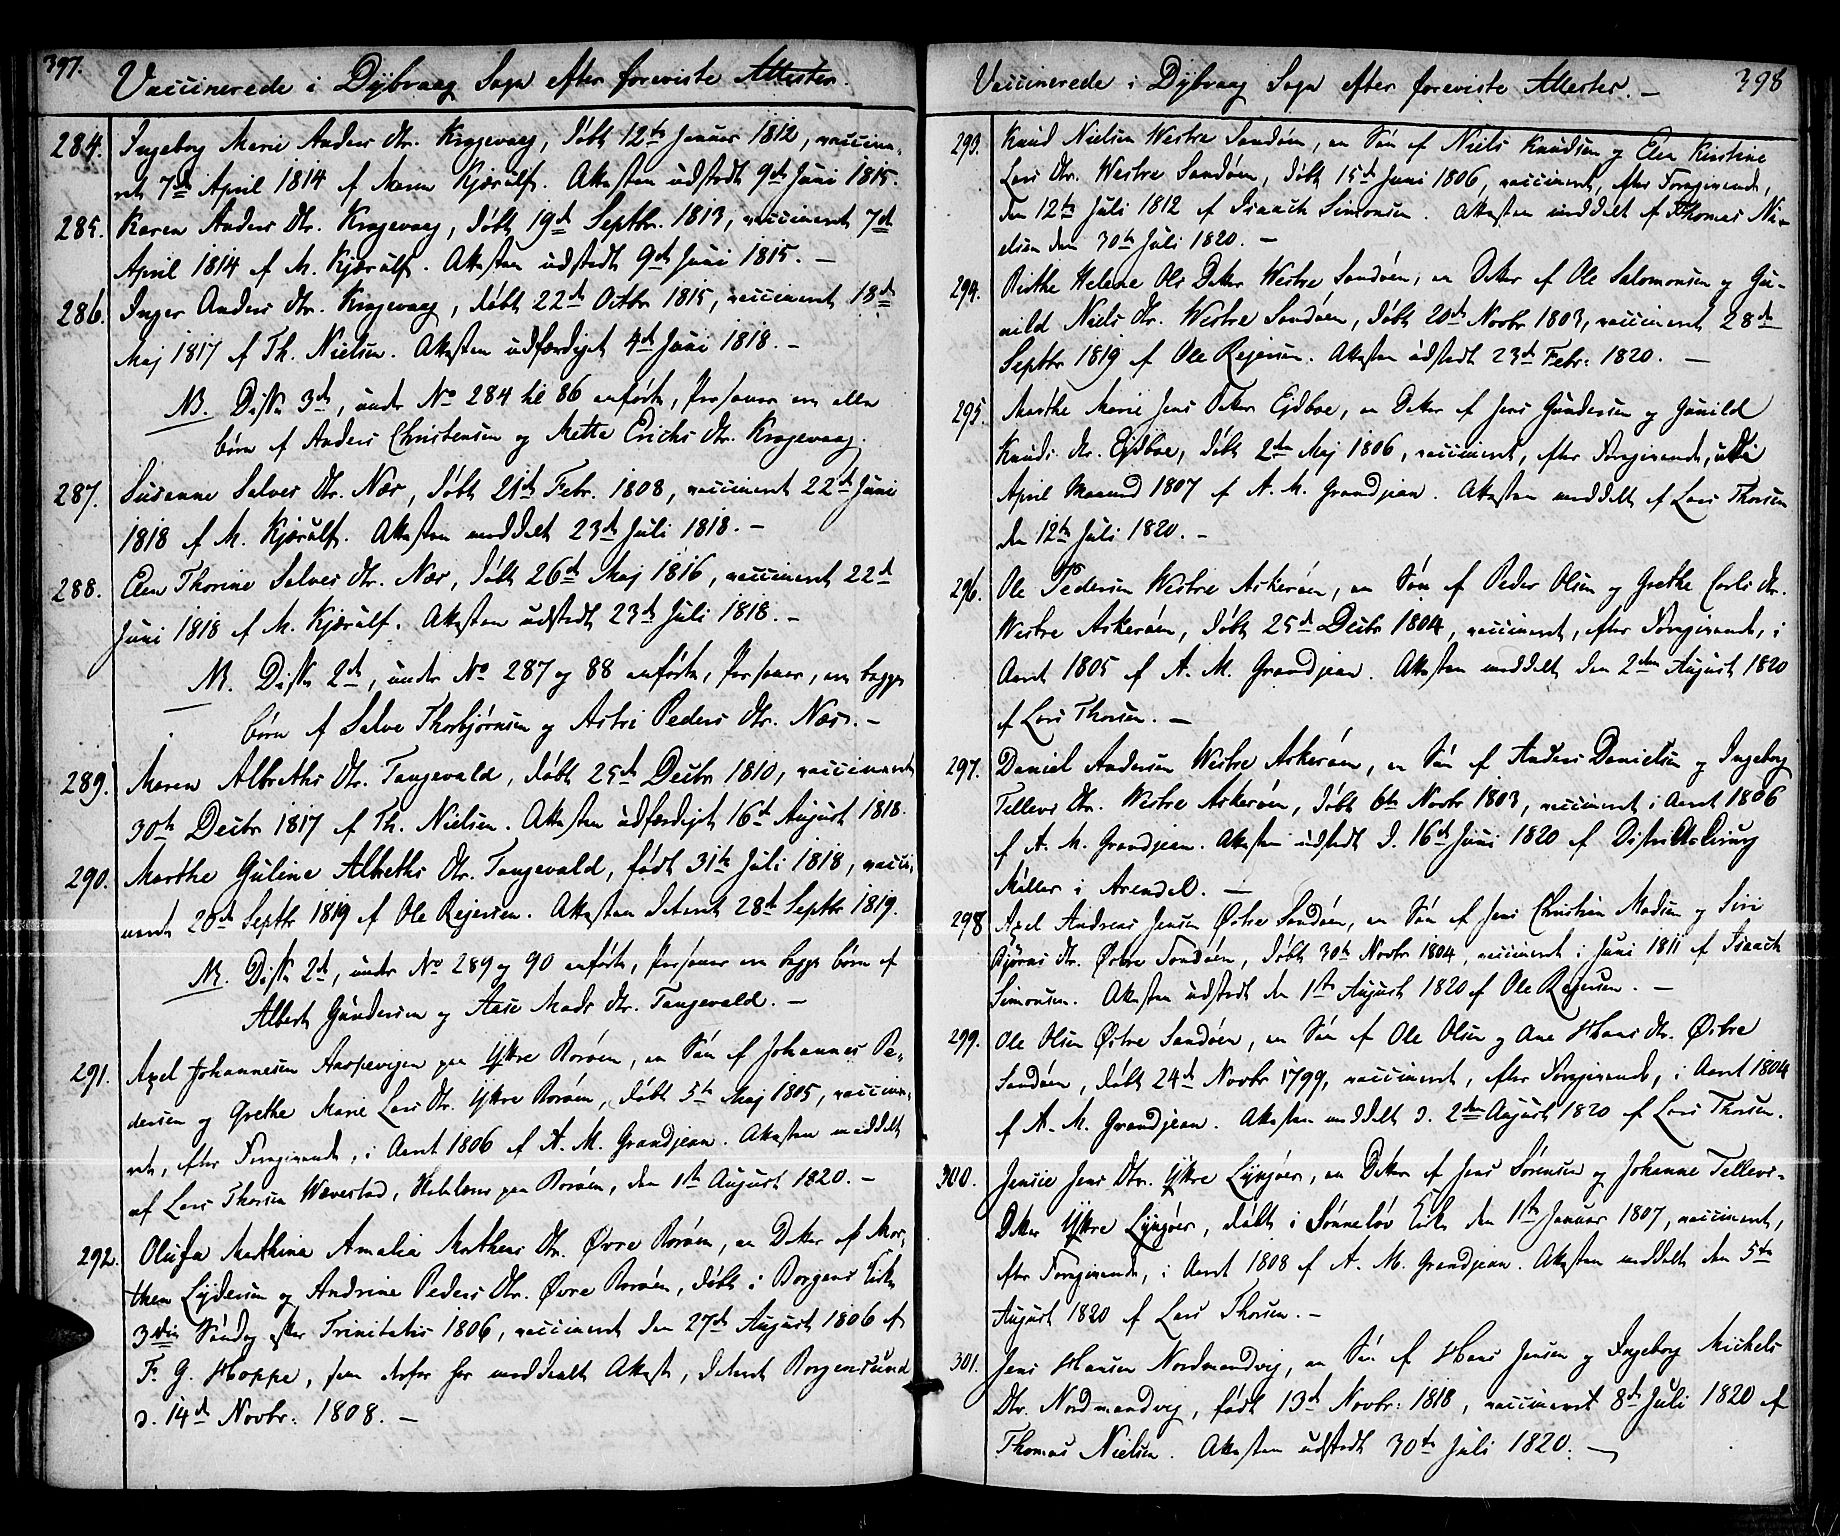 397.
Vaccinerede i Dÿbvaag Sogn efter foreviste Attester.
284. Ingeborg Marie Anders Dtr. Kragevaag, döbt 12te Januar 1812, vaccine-
ret 7de April 1814 af Maren Kjærulf. Attesten udstedt 9de Juni 1815.
285. Karen Anders Dtr. Kragevaag, döbt 19de Septbr. 1813, vaccineret 7de
April 1814 af M. Kjærulf. Attesten udstedt 9de Juni 1815. –
286. Inger Anders Dtr. Kragevaag, döbt 22de Octbr 1815, vaccineret 18de
Maj 1817 af Th. Nielsen. Attesten udfærdiget 4de Juni 1818. –
NB. Disse 3de, under No 284 til 86 anförte, Personer ere alle
börn af Anders Christensen og Mette Erichs Dtr. Kragevaag.
287. Susanne Salves Dtr. Næs, döbt 21de Febr. 1808, vaccineret 22de Juni
1818 af M. Kjærulf. Attesten meddelt 23de Juli 1818. –
288. Elen Thorine Salves Dtr. Næs, döbt 26de Maj 1816, vaccineret 22de
Juni 1818 af M. Kjærulf. Attesten udstedt 23de Juli 1818. –
NB. Disse 2de, under No 287 og 88 anförte, Personer, ere begge
börn af Salve Thorbjörnsen og Astri Peders Dtr. Næs. –
289. Maren Albreths Dtr. Tangevald, döbt 25de Decbr 1810, vaccineret
30te Decbr 1817 af Th. Nielsen. Attesten udfærdiget 16de August 1818.
290. Marthe Guline Albreths Dtr. Tangevald, födt 31te Juli 1818, vacci-
neret 20de Septbr 1819 af Ole Rejersen. Attesten dateret 28de Septbr 1819.
NB. Disse 2de, under No 289 og 90 anförte, Personer ere begge börn af
Albert Gundersen og Aase Mads Dtr. Tangevald. –
291. Axel Johannesen Aaspevigen paa Ÿttre Boröen, en Sön af Johannes Pe-
dersen og Grethe Marie Lars Dtr. Ÿttre Boröen, döbt 5te Maj 1805, vaccine-
ret, efter Foregivende, i Aaret 1806 af A. M. Grandjean. Attesten meddelt
af Lars Thorsen Wævestad, paa Boröen, den 1te August 1820. –
292. Olufa Mathina Amalia Mathens Dtr. Övre Boröen, en Datter af Ma-
then Lÿdersen og Andrine Peders Dtr. Övre Boröen, döbt i Borgens Kirke
3die Söndag efter Trinitatis 1806, vaccineret den 27de August 1806 af
F. G. Hoppe, som derfor har meddeelt Attest, dateret Borgensund
d. 14de Novbr: 1808. –
Vaccinerede i Dÿbvaag Sogn efter foreviste Attester. –
398
293. Knud Nielsen Westre Sandöen, en Sön af Niels Knudsen og Elen Kirstine
Lars Dtr. Westre Sandöen, döbt 15de Juni 1806, vaccineret, efter Foregivende,
den 12te Juli 1812 af Isaach Simonsen. Attesten meddelt af Thomas Ni-
elsen den 30te Juli 1820. –
294. Birthe Helene Ols Datter Westre Sandöen, en Datter af Ole Salomonsen og Gu-
nild Niels Dtr. Westre Sandöen, döbt 20de Novbr 1803, vaccineret 28de
Septbr 1819 af Ole Rejersen. Attesten udstedt 23de Febr: 1820. –
295. Marthe Marie Jens Datter Ejdboe, en Datter af Jens Gundersen og Gunild
Knuds Dtr. Ejdboe, döbt 2den Maj 1806, vaccineret, efter Foregivende, udi
April Maaned 1807 af A. M. Grandjean. Attesten meddelt af Lars Thorsen
den 12te Juli 1820. –
296. Ole Pedersen Westre Askeröen, en Sön af Peder Olsen og Grethe Carls Dtr.
Westre Askeröen, döbt 25de Decbr 1804, vaccineret, efter Foregivende, i
Aaret 1805 af A. M. Grandjean. Attesten meddelt den 2den August 1820
af Lars Thorsen. –
297. Daniel Andersen Westre Askeröen, en Sön af Anders Danielsen og Ingeborg
Tellevs Dtr. Westre Askeröen, döbt 6te Novbr 1803, vaccineret i Aaret 1806
af A. M. Grandjean. Attesten udstedt d. 16de Juni 1820 af Districtschirurg
Möller i Arendal. –
298 Axel Andreas Jensen Östre Sandöen, en Sön af Jens Christian Madsen og Siri
Björns Dtr. Östre Sandöen, döbt 30te Novbr 1804, vaccineret i Juni 1811 af Isaach
Simonsen. Attesten udstedt den 1te August 1820 af Ole Rejersen. –
299. Ole Olsen Östre Sandöen, en Sön af Ole Olsen og Ane Hans Dtr. Östre
Sandöen, döbt 24de Novbr 1799, vaccineret, efter Foregivende, i Aaret 1804
af A. M. Grandjean. Attesten meddelt d. 2den August 1820 af Lars Thorsen.
300. Jensie Jens Dtr. Ÿttre Lÿngöer, en Datter af Jens Sörensen og Johanne Tellevs-
Datter Ÿttre Lÿngöer, döbt i Sönnelöv Kirke den 1te Januar 1807, vaccineret,
efter Foregivende, i Aaret 1808 af A. M. Grandjean. Attesten meddelt den 5te
August 1820 af Lars Thorsen. –
301. Jens Hansen Nordmandvig, en Sön af Hans Jensen og Ingeborg Michels
Dtr. Nordmandvig, födt 13de Novbr: 1818, vaccineret 8de Juli 1820 af
Thomas Nielsen. Attesten udstedt 30te Juli 1820. –